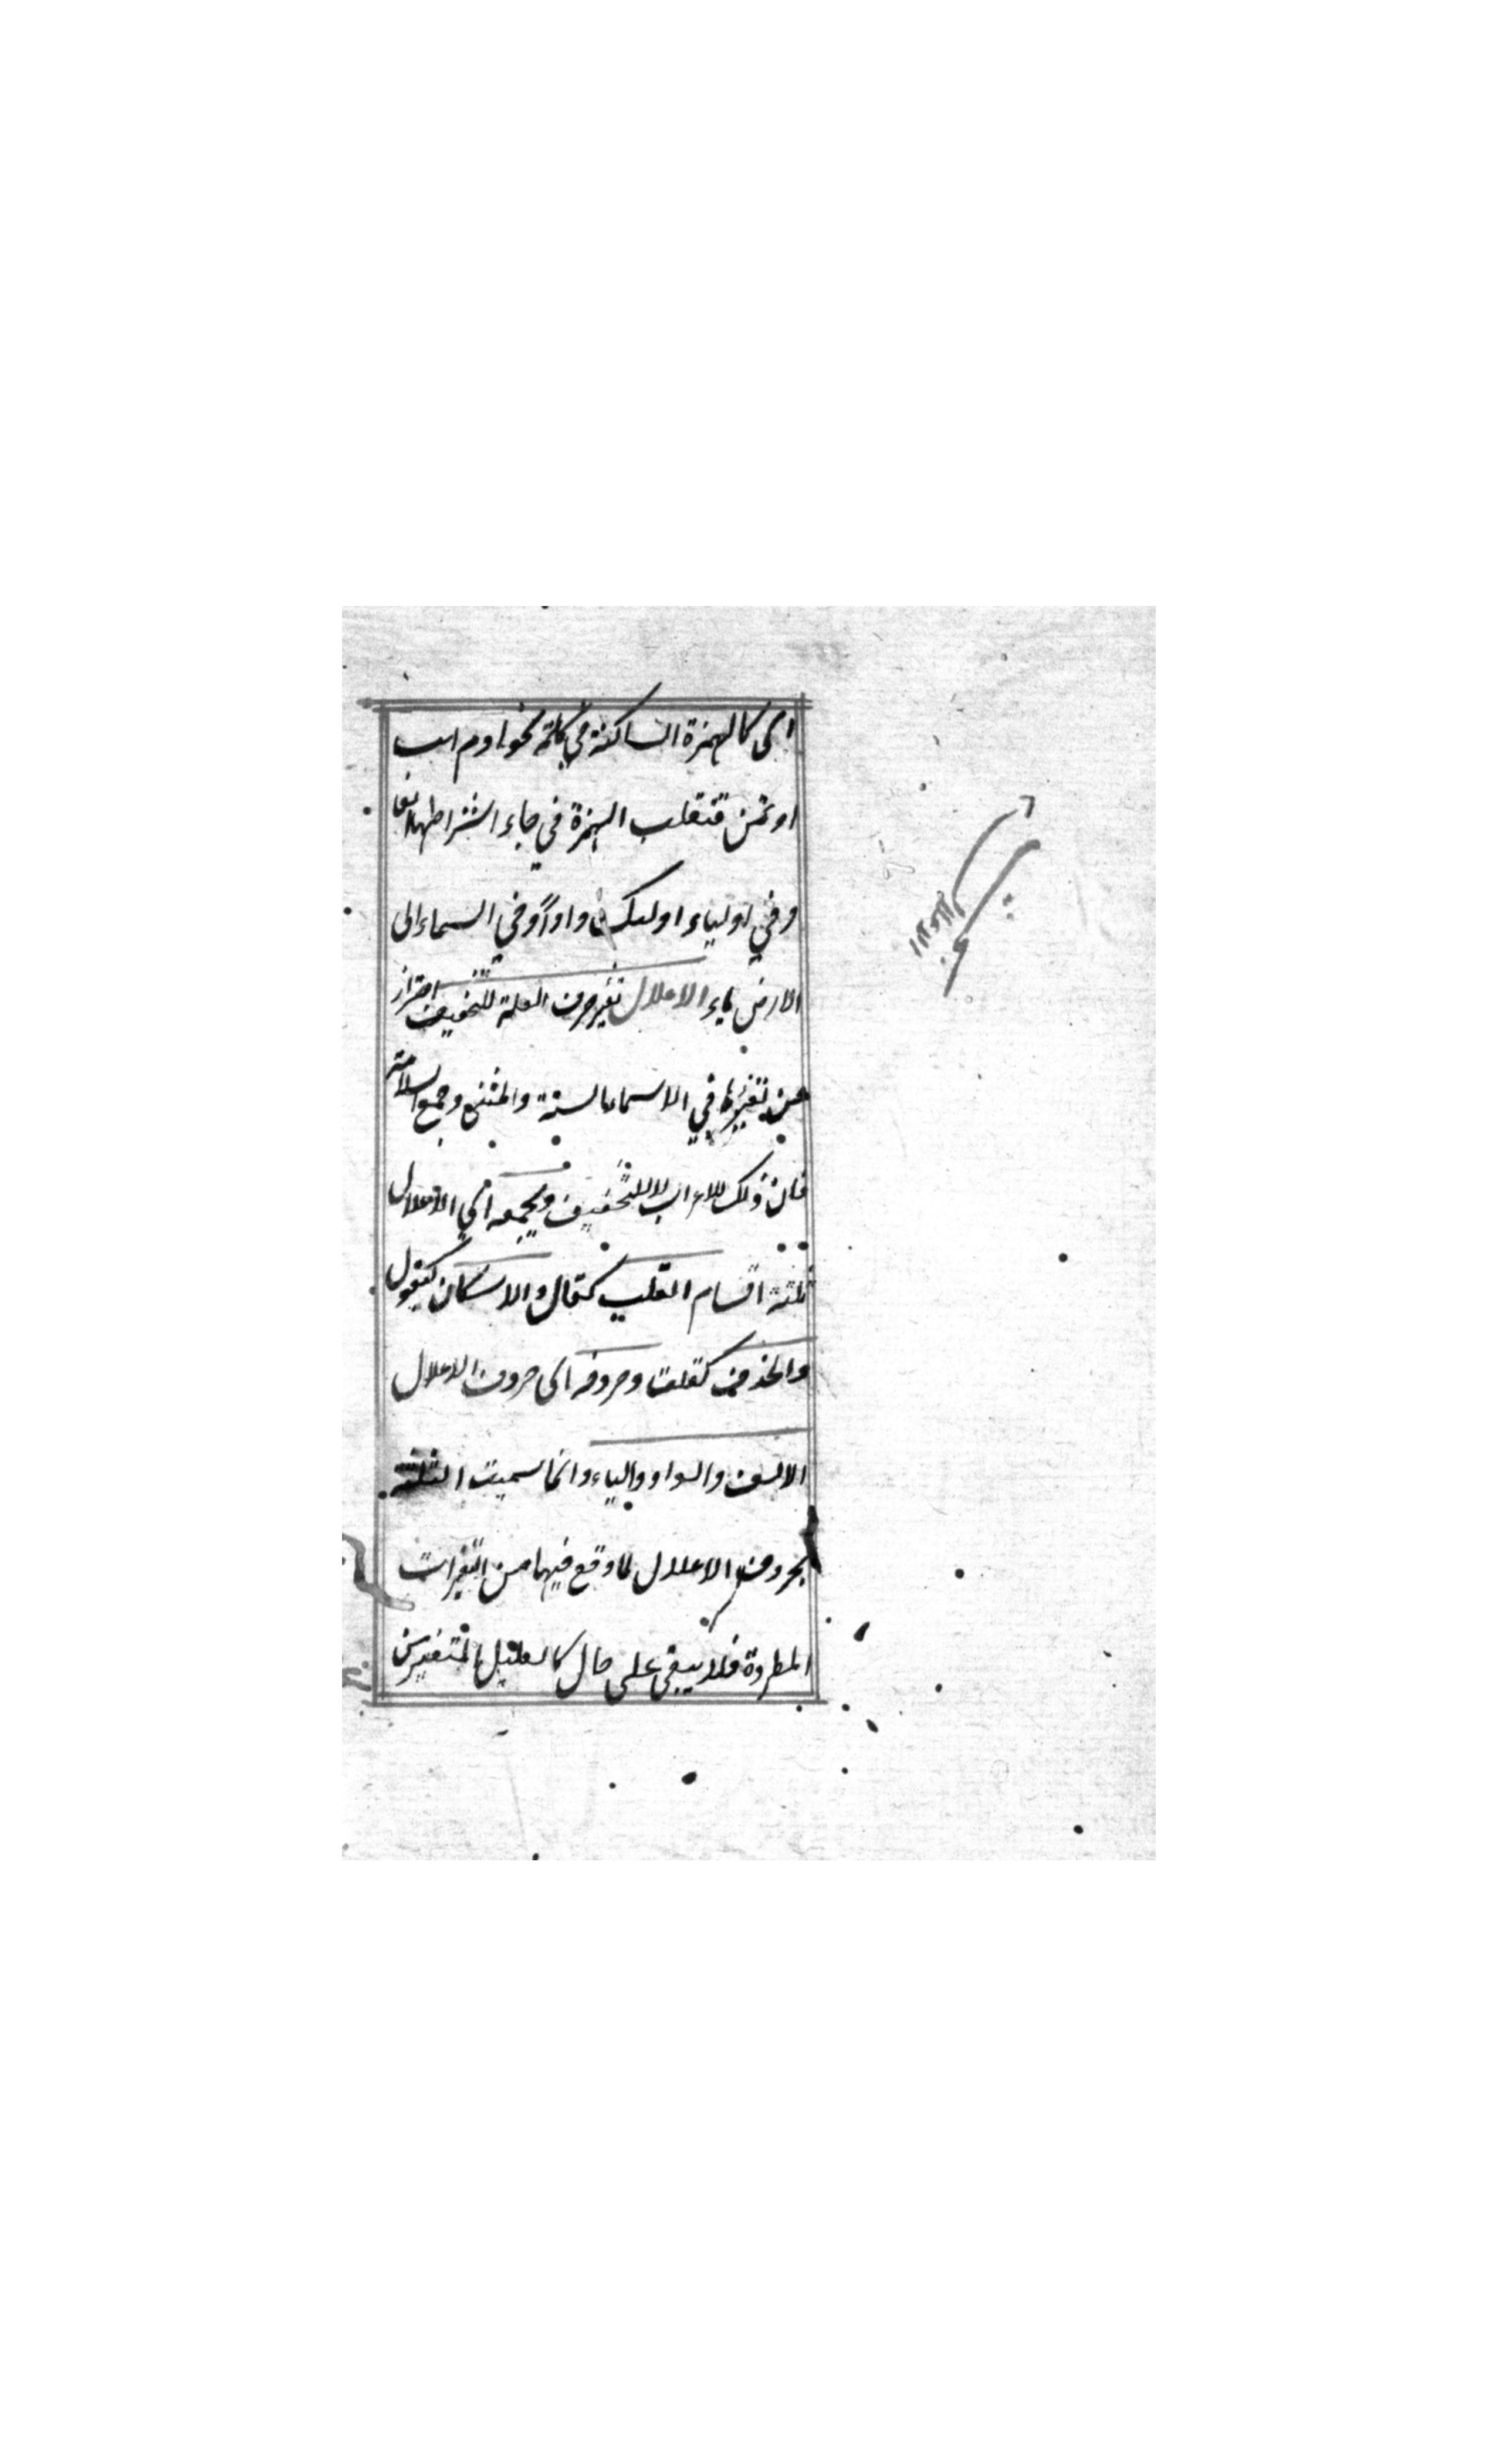 اى كالهمزة الساكنة فى كلمة نحو ادم ايب
اوتمن فتقلب الهمزة في جاء اشراطها الفا
وفي اولياء اولئك واوا وفي السماء الى
الارض ياء الاعلال تغير حرف العلة للتخفيف احتراز
عن تغيرها في الاسماء الستة والمثنى وجمع السلامة
فان ذلك للاعراب لا للتخفيف ويجمعه اي الاعلال
ثلثة اقسام القلب كقال والاسكان كيقول
والحذف كقلت وحروفه اى حروف الاعلال
الالف والواو والياء وانما سميت الثلثة
بحروف الاعلال لما وقع فيها من التغيرات
المطردة فلا يبقى على حال كالعليل المتغير
الاعلال